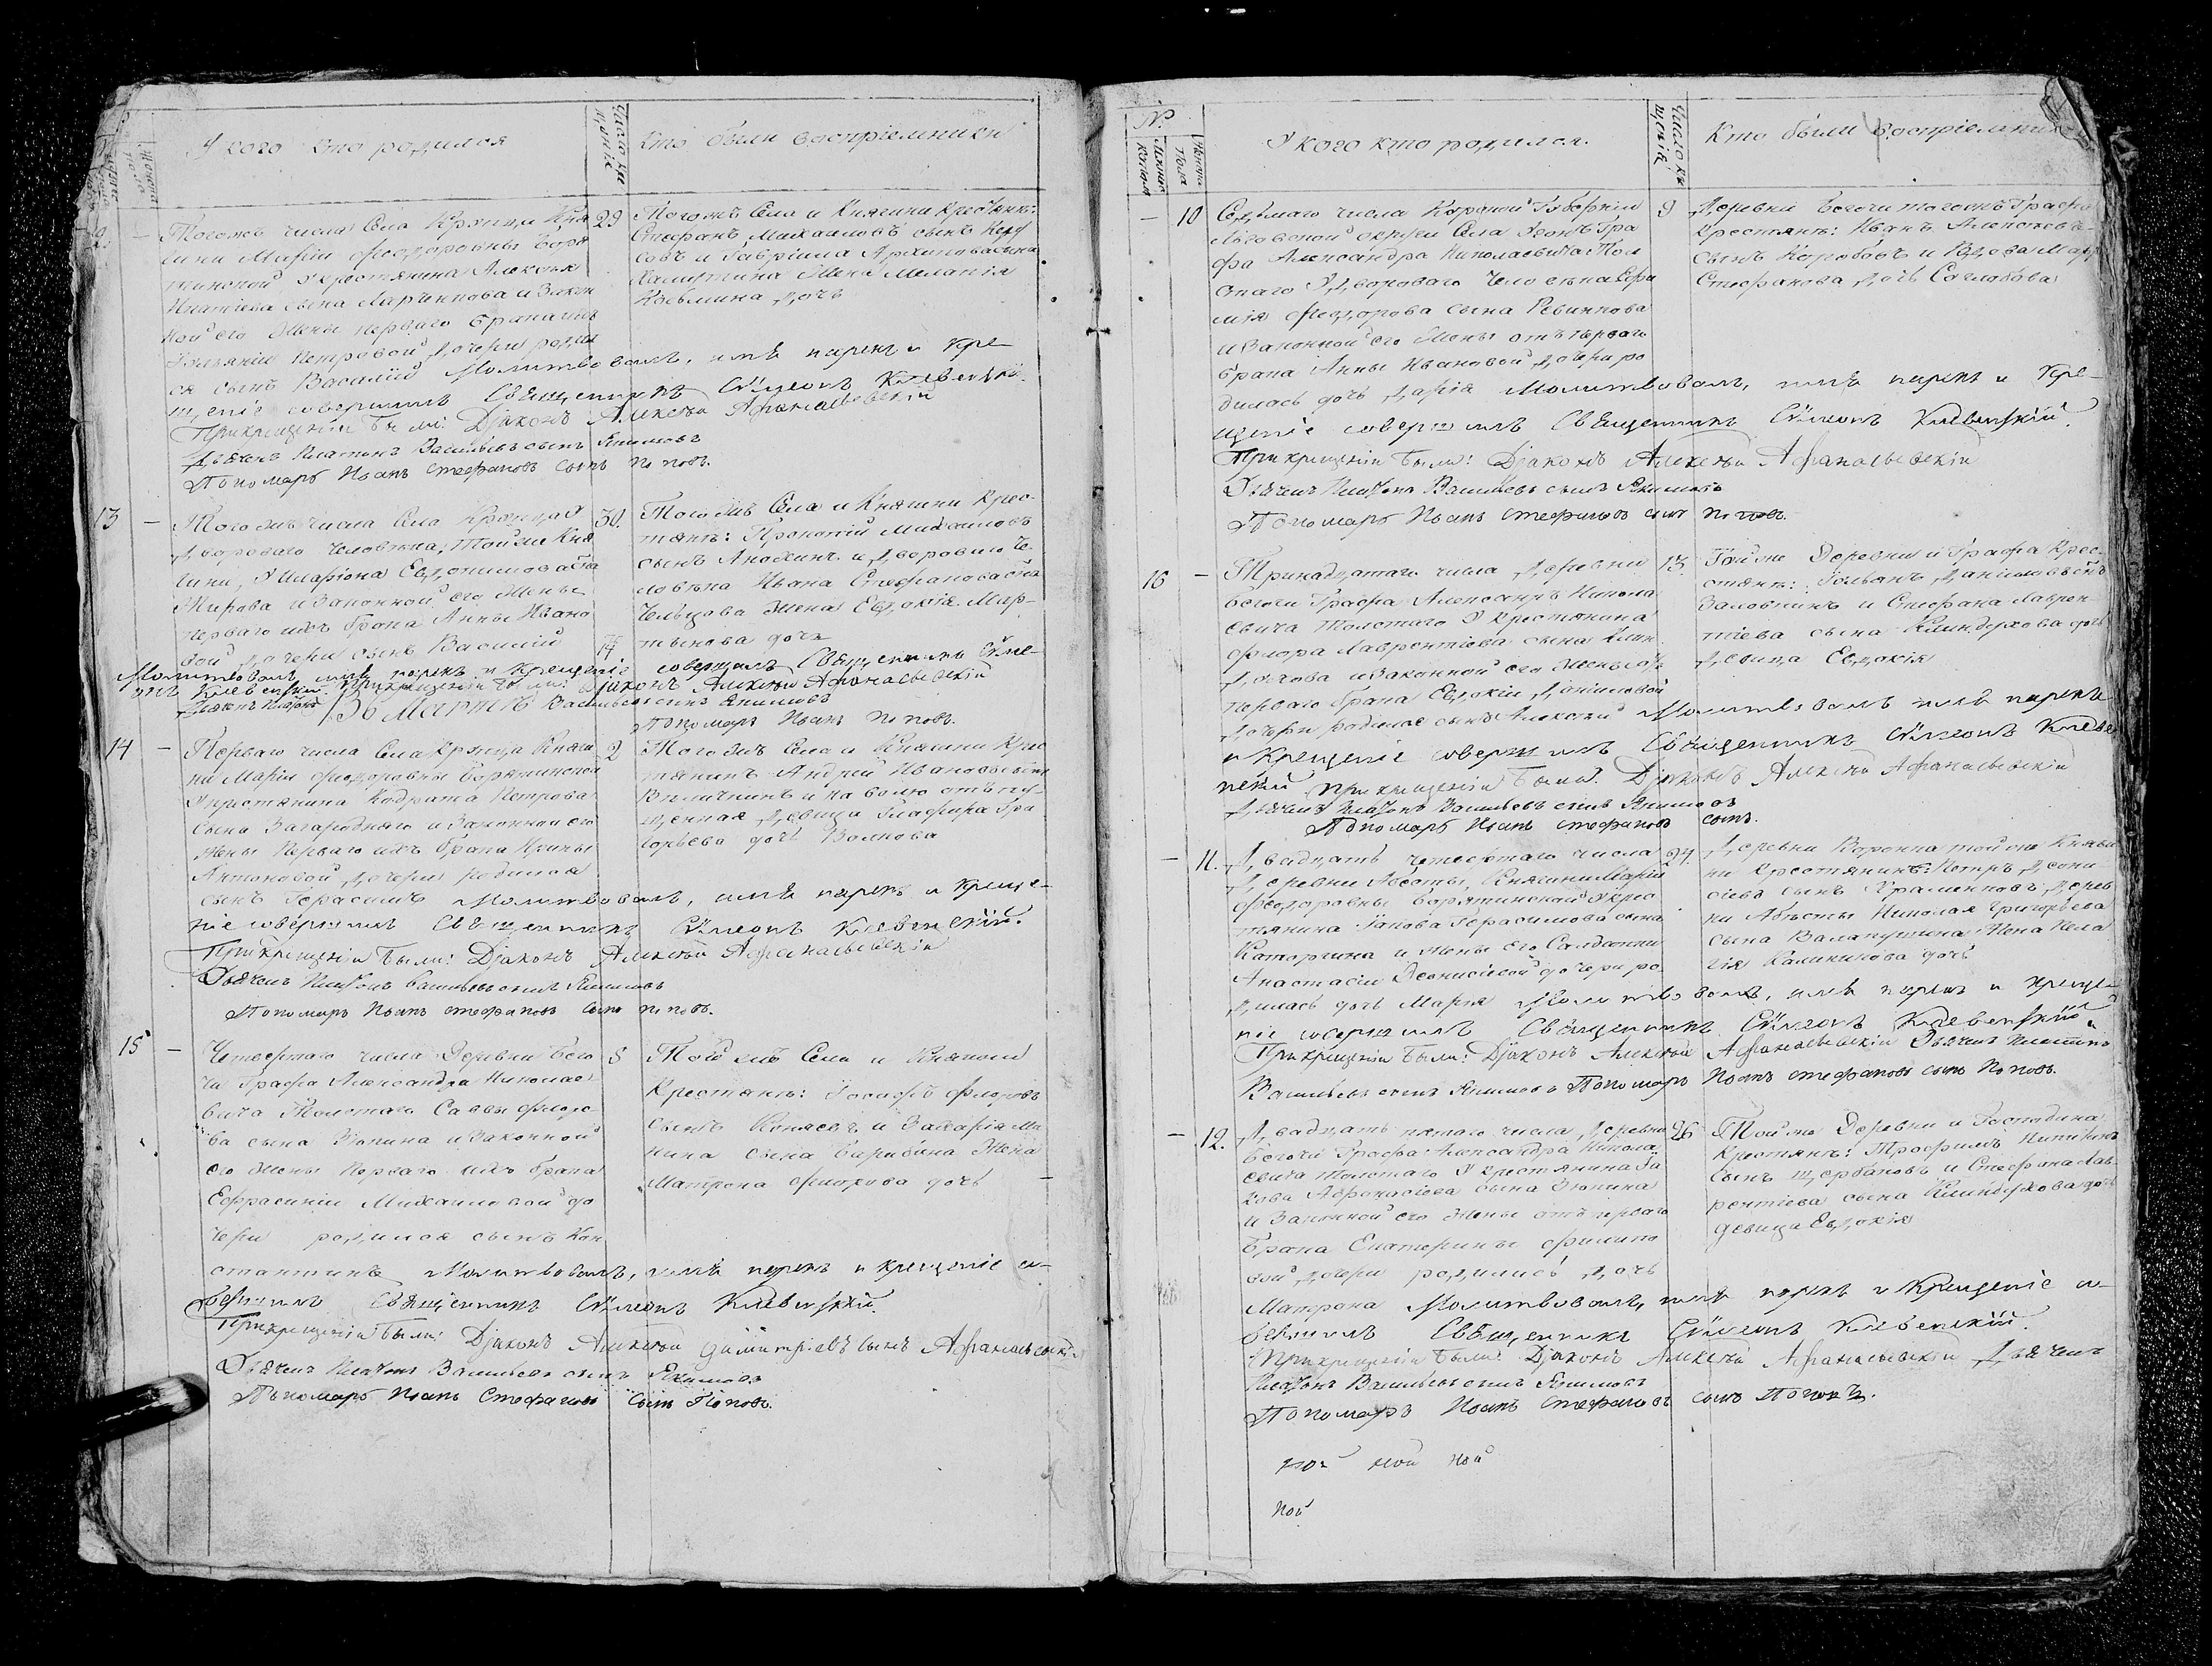 У кого кто родился
Число кре
щенія
Кто были воспріемники
Тогожъ числа Села Крупца Кня
гини Маріи Феодоровны Боря
тинской У крестьянина Алексѣя
Игнатіева сына и закон
ной его Жены перваго брака
Петровой дочери родил
ся сынъ Василій Молитвовалъ, имя нарекъ и кре
щеніе совершилъ Священникъ Сѵмеонъ Клевенскій
При крещеніи были: Діаконъ Алексѣй Афанасьевскій
Дьячекъ Платонъ Васильевъ сынъ Якимовъ
Пономарь Иоанъ Стефановъ сынъ Поповъ.
29
Тогожъ Села и Княгини Крестьянъ:
Стефанъ Михаиловъ сынъ
и Гавріила Архипова сына
Жена Меланія
Козьмина дочь
13 —
Тогожъ числа Села Крупца У
двороваго человѣка, тойже Кня
гини, У Иларіона Евдокимова сына
Жирова и законной его Жены
перваго ихъ брака Анны Ивано
вой дочери сынъ Василій
Молитвовалъ имя нарекъ и крещеніе совершилъ Священникъ Сѵме
онъ Клевенскій. При крещеніи были: Діаконъ Алексѣй Афанасьевскій
Дьячекъ Платонъ Васильевъ сынъ Якимовъ
Пономарь Иоанъ Поповъ.
30.
Тогожъ Села и Княгини Крес
тьянъ: Прокопій Михаиловъ
сынъ Анохинъ и двороваго че
ловѣка Ивана Стефанова сына
Чельцова Жена Евдокія Мар
тынова дочь
Въ Мартѣ
14 —
Перваго числа Села Крупца Княги
ни Маріи Феодоровны Борятинской
У крестьянина Кодрата Петрова
сына Загороднаго и законной его
жены перваго ихъ брака Ирины
Антоновой дочери родился
сынъ Герасимъ Молитвовалъ, имя нарекъ и креще
ніе совершилъ Священникъ Сѵмеонъ Клевенскій.
При крещеніи были: Діаконъ Алексѣй Афанасьевскій
Дьячекъ Платонъ Васильевъ сынъ Якимовъ
Пономарь Иоанъ Стефановъ сынъ Поповъ.
2
Тогожъ Села и Княгини Крес
тьянинъ Андрей Ивановъ сынъ
и на волю отпу
щенная дѣвица Глафира Гри
горьева дочь Волкова
15 —
Четвертаго числа Деревни Бого
чи Графа Александра Николае
вича Толстаго Саввы Федо
ва сына Зюпина и законной
его Жены перваго ихъ брака
Ефросиніи Михаиловой до
чери родился сынъ Кон
стантинъ Молитвовалъ, имя нарекъ и крещеніе со
вершилъ Священникъ Сѵмеонъ Клевенскій.
При крещеніи были: Діаконъ Алексѣй Димитріевъ сынъ Афанасьевскій
Дьячекъ Платонъ Васильевъ сынъ Якимовъ
Пономарь Иоанъ Стефановъ сынъ Поповъ.
5
Той жъ Села и Княгини
Крестьянъ: Іосифъ Флоровъ
сынъ и Захарія Ми
нина сына Жена
Матрона Флорова дочь
№
У кого кто родился.
Число кре
щенія
Кто были воспріемники
— 10
Седьмаго числа Курской Губерніи
Льговской округи Села Гра
фа Александра Николаевича Тол
стаго У двороваго человѣка Ефи
мія Федорова сына
и законной его Жены отъ перваго
брака Анны Ивановой дочери ро
дилась дочь Дарія Молитвовалъ, имя нарекъ и кре
щеніе совершилъ Священникъ Сѵмеонъ Клевенскій.
При крещеніи были: Діаконъ Алексѣй Афанасьевскій
Дьячекъ Платонъ Васильевъ сынъ Якимовъ
Пономарь Иоанъ Стефановъ сынъ Поповъ.
9
Деревни Богочи тогожъ Графа
Крестьянъ: Иванъ Алексѣевъ
сынъ Коробовъ и Вдова
Стефанова дочь
16 —
Тринадцатаго числа деревни
Богочи Графа Александра Никола
евича Толстаго У крестьянина
Флора Лаврентіева сына
и законной его Жены отъ
перваго брака Евдокіи Даниловой
дочери родился сынъ Алексѣй Молитвовалъ имя нарекъ
и крещеніе совершилъ Священникъ Сѵмеонъ Клеве
нскій При крещеніи были: Діаконъ Алексѣй Афанасьевскій
Дьячекъ Платонъ Васильевъ сынъ Якимовъ
Пономарь Иоанъ Стефановъ сынъ.
13.
Тойже Деревни и Графа Крес
тьянъ: Даниловъ сынъ
и Стефана Лаврен
тіева сына дочь
Дѣвица Евдокія
— 11.
Двадцать четвертаго числа
Деревни Княгини Маріи
Феодоровны Борятинской У крес
тьянина Іакова Герасимова сына
Каторгина и жены его Солдатки
Анастасіи Деонисіевой дочери ро
дилась дочь Марія Молитвовалъ, имя нарекъ и креще
ніе совершилъ Священникъ Сѵмеонъ Клевенскій.
При крещеніи были: Діаконъ Алексѣй Афанасьевскій Дьячекъ Платонъ
Васильевъ сынъ Якимовъ Пономарь Иоанъ Стефановъ сынъ Поповъ.
24.
Деревни тойже Княги
ни Крестьянинъ: Петръ Деони
сіевъ сынъ Дерев
ни Николая Григорьева
сына Жена Пела
гія Калинникова дочь
— 12.
Двадцать пятаго числа Деревни
Богочи Графа Александра Никола
евича Толстаго У крестьянина Іа
кова Афонасіева сына Зюпина
и законной его Жены отъ перваго
брака Екатерины Филипо
вой дочери родилась дочь
Матрона Молитвовалъ, имя нарекъ и крещеніе со
вершилъ Священникъ Сѵмеонъ Клевенскій.
При крещеніи были: Діаконъ Алексѣй Афанасьевскій Дьячекъ
Платонъ Васильевъ сынъ Якимовъ
Пономарь Иоанъ Стефановъ сынъ Поповъ.
26
Тойже Деревни и Господина
Крестьянъ: Трофимъ Никитинъ
сынъ Щербаковъ и Стефана Лав
рентіева сына дочь
дѣвица Евдокія
ной ной ной
ной